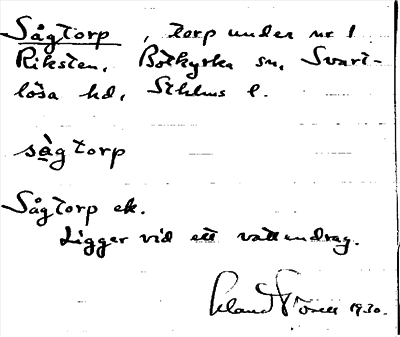 Sågtorp, torp under nr 1
Riksten, Botkyrka sn, Svart-
lösa hd, Sthlms l.
sågtorp
Sågtorp ek.
Ligger vid ett vattendrag.
1930.